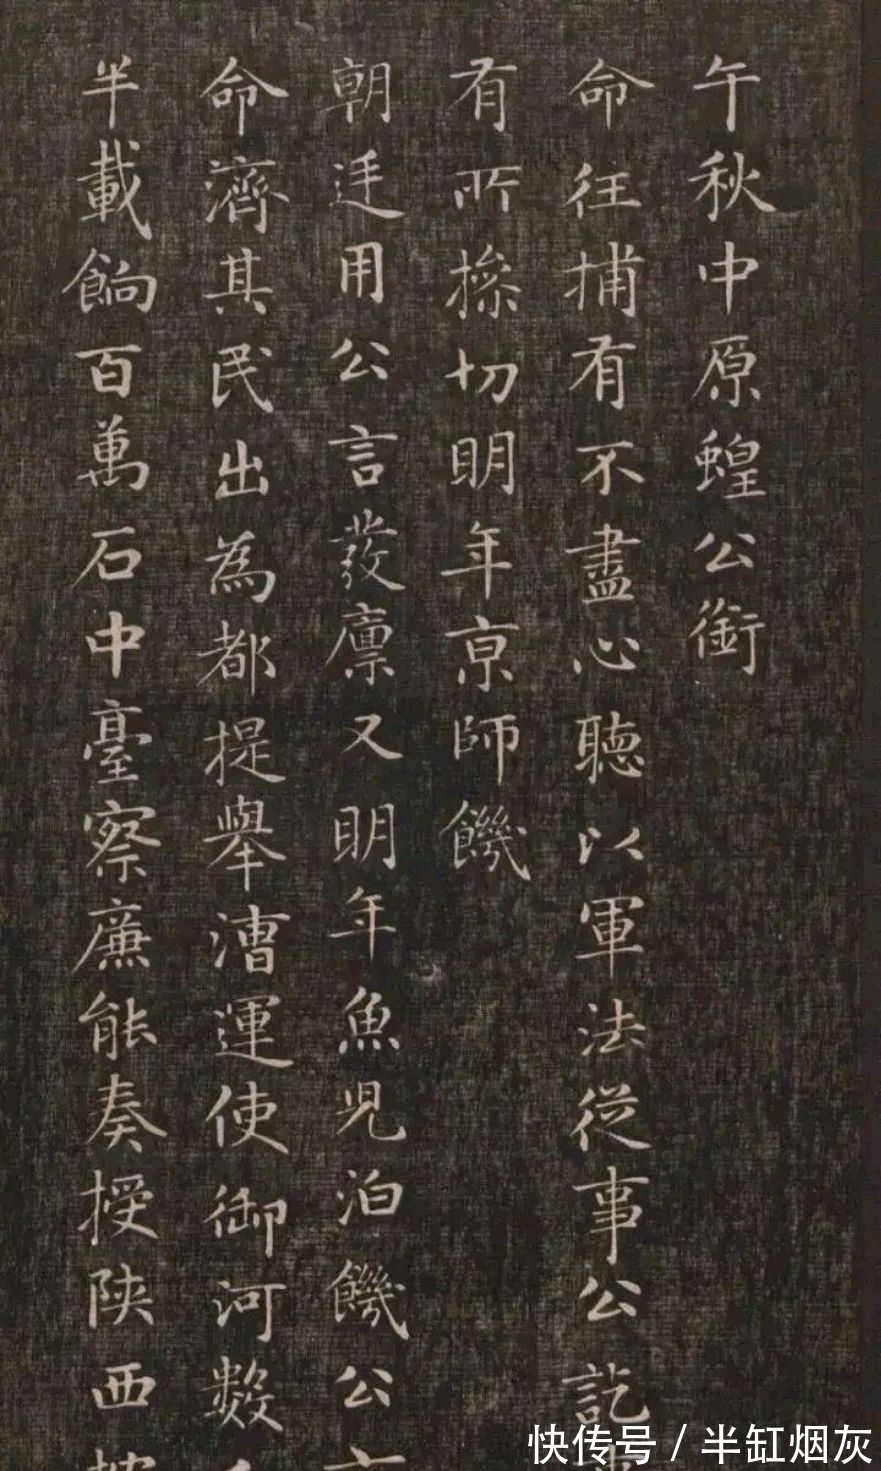 午秋中原蝗公銜
命往捕有不盡心聽以軍法從事公訖
有所摻切明年京師饑
朝廷用公言發廪又明年魚児泊饑公
命濟其民出為都提舉漕運使御河數
半載餉百萬石中臺察廉能奏授陕西
快传号 / 半缸烟灰